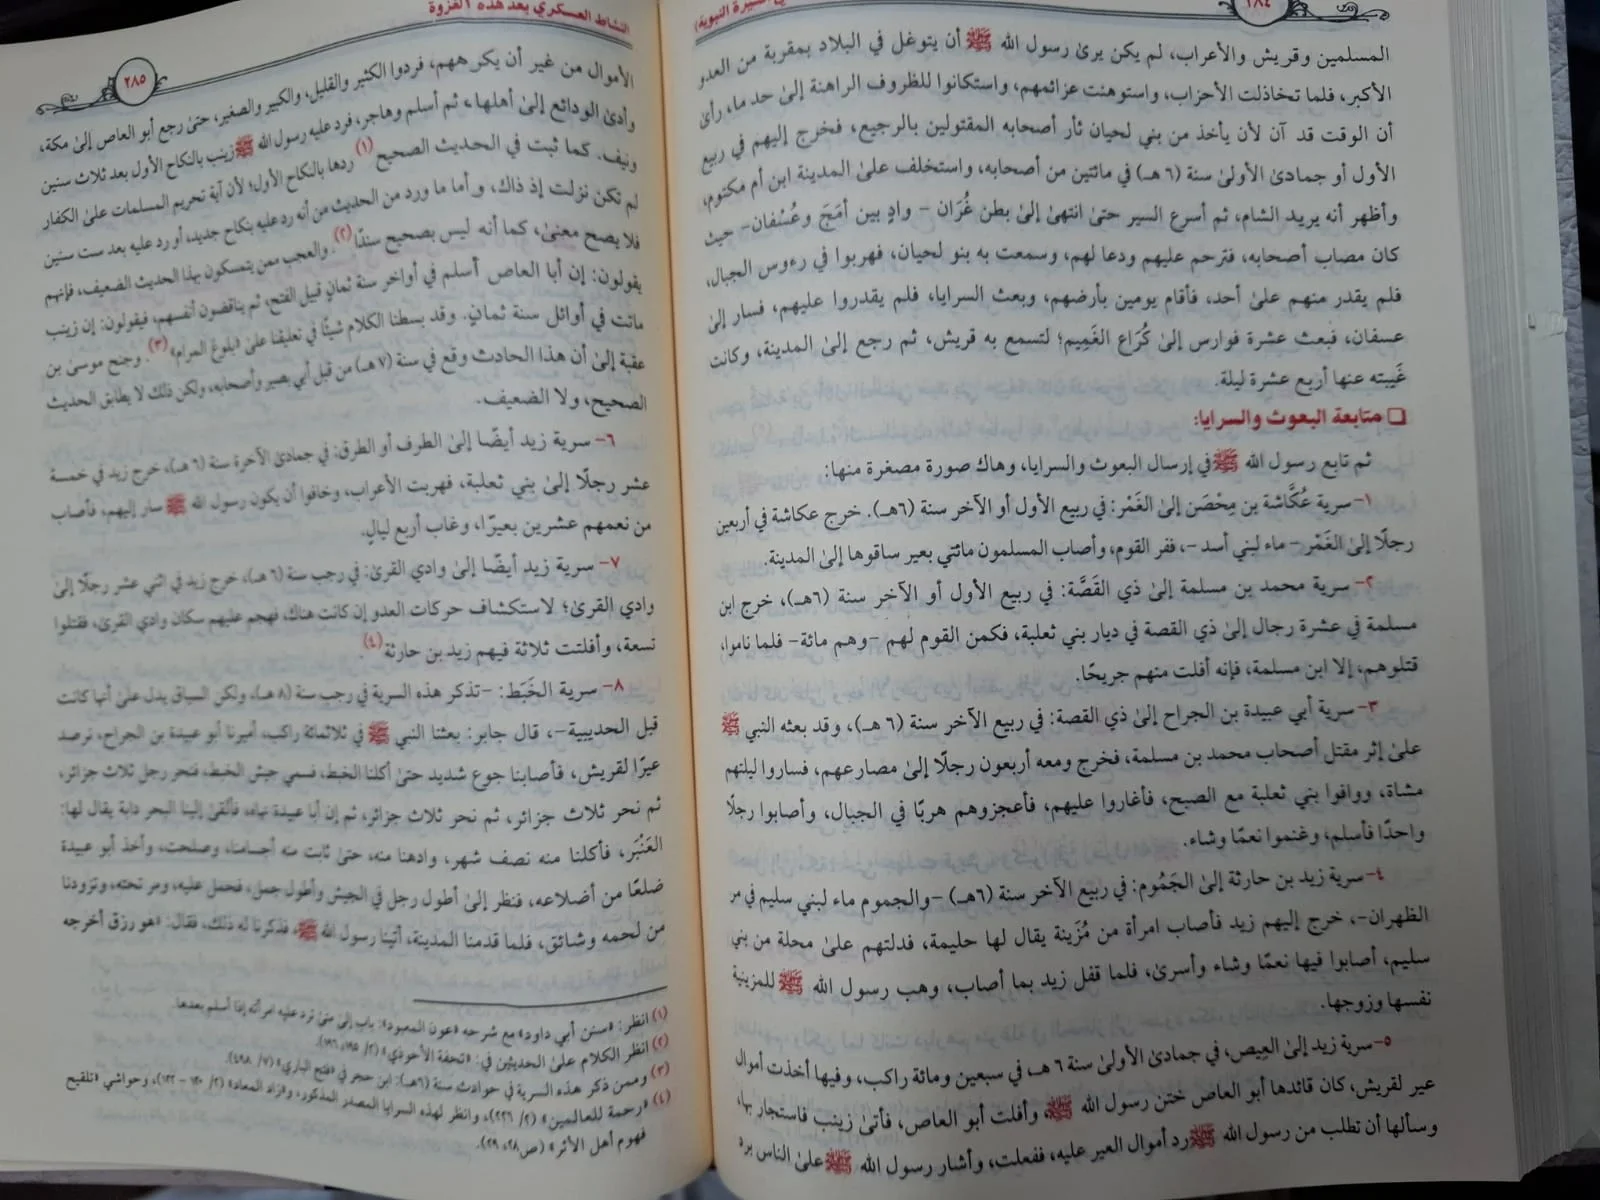 ٢٨٤
المسلمين وقريش والأعراب، لم يكن يرى رسول الله ﷺ أن يتوغل في البلاد بمقربة من العدو
الأكبر، فلما تخاذلت الأحزاب، واستوهنت عزائمهم، واستكانوا للظروف الراهنة إلى حد ما، رأى
أن الوقت قد آن لأن يأخذ من بني لحيان ثأر أصحابه المقتولين بالرجيع، فخرج إليهم في ربيع
الأول أو جمادى الأولى سنة (٦ هـ) في مائتين من أصحابه، واستخلف على المدينة ابن أم مكتوم،
وأظهر أنه يريد الشام، ثم أسرع السير حتى انتهى إلى بطن غُرَان - وادٍ بين أمَجَ وعُسْفان- حيث
كان مصاب أصحابه، فترحم عليهم ودعا لهم، وسمعت به بنو لحيان، فهربوا في رءوس الجبال،
فلم يقدر منهم على أحد، فأقام يومين بأرضهم، وبعث السرايا، فلم يقدروا عليهم، فسار إلى
عسفان، فبعث عشرة فوارس إلى كُرَاع الغَمِيم؛ لتسمع به قريش، ثم رجع إلى المدينة، وكانت
غَيبته عنها أربع عشرة ليلة.
❑ متابعة البعوث والسرايا:
ثم تابع رسول الله ﷺ في إرسال البعوث والسرايا، وهاك صورة مصغرة منها:
١- سرية عُكَّاشة بن مِحْصَن إلى الغَمْر: في ربيع الأول أو الآخر سنة (٦هـ). خرج عكاشة في أربعين
رجلًا إلى الغَمْر - ماء لبني أسد -، ففر القوم، وأصاب المسلمون مائتي بعير ساقوها إلى المدينة.
٢- سرية محمد بن مسلمة إلى ذي القَصَّة: في ربيع الأول أو الآخر سنة (٦هـ)، خرج ابن
مسلمة في عشرة رجال إلى ذي القصة في ديار بني ثعلبة، فكمن القوم لهم -وهم مائة- فلما ناموا،
قتلوهم، إلا ابن مسلمة، فإنه أفلت منهم جريحًا.
٣- سرية أبي عبيدة بن الجراح إلى ذي القصة: في ربيع الآخر سنة (٦ هـ)، وقد بعثه النبي ﷺ
على إثر مقتل أصحاب محمد بن مسلمة، فخرج ومعه أربعون رجلًا إلى مصارعهم، فساروا ليلتهم
مشاة، ووافوا بني ثعلبة مع الصبح، فأغاروا عليهم، فأعجزوهم هربًا في الجبال، وأصابوا رجلًا
واحدًا فأسلم، وغنموا نعمًا وشاء.
٤- سرية زيد بن حارثة إلى الجَمُوم: في ربيع الآخر سنة (٦هـ) -والجموم ماء لبني سليم في مر
الظهران-، خرج إليهم زيد فأصاب امرأة من مُزَينة يقال لها حليمة، فدلتهم على محلة من بني
سليم، أصابوا فيها نعمًا وشاء وأسرى، فلما قفل زيد بما أصاب، وهب رسول الله ﷺ للمزينية
نفسها وزوجها.
٥- سرية زيد إلى العِيص، في جمادى الأولى سنة ٦ هـ، في سبعين ومائة راكب، وفيها أخذت أموال
عير لقريش، كان قائدها أبو العاص ختن رسول الله ﷺ، وأفلت أبو العاص، فأتى زينب فاستجار بها،
وسألها أن تطلب من رسول الله ﷺ رد أموال العير عليه، ففعلت، وأشار رسول الله ﷺ على الناس برد
النشاط العسكري بعد هذه الغزوة
٢٨٥
الأموال من غير أن يكرههم، فردوا الكثير والقليل، والكبير والصغير، حتى رجع أبو العاص إلى مكة،
وأدى الودائع إلى أهلها، ثم أسلم وهاجر، فرد عليه رسول الله ﷺ زينب بالنكاح الأول بعد ثلاث سنين
ونيف. كما ثبت في الحديث الصحيح (١) ردها بالنكاح الأول؛ لأن آية تحريم المسلمات على الكفار
لم تكن نزلت إذ ذاك، وأما ما ورد من الحديث من أنه رد عليه بنكاح جديد، أو رد عليه بعد ست سنين
فلا يصح معنى، كما أنه ليس بصحيح سندًا(٢). والعجب ممن يتمسكون بهذا الحديث الضعيف، فإنهم
يقولون: إن أبا العاص أسلم في أواخر سنة ثمانٍ قبيل الفتح، ثم يناقضون أنفسهم، فيقولون: إن زينب
ماتت في أوائل سنة ثمانٍ. وقد بسطنا الكلام شيئًا في تعليقنا على «بلوغ المرام»(٣). وجنح موسى بن
عقبة إلى أن هذا الحادث وقع في سنة (٧هـ) من قبل أبي بصير وأصحابه، ولكن ذلك لا يطابق الحديث
الصحيح، ولا الضعيف.
٦- سرية زيد أيضًا إلى الطرف أو الطرق: في جمادى الآخرة سنة (٦ هـ)، خرج زيد في خمسة
عشر رجلًا إلى بني ثعلبة، فهربت الأعراب، وخافوا أن يكون رسول الله ﷺ سار إليهم، فأصاب
من نعمهم عشرين بعيرًا، وغاب أربع ليالٍ.
٧- سرية زيد أيضًا إلى وادي القرى: في رجب سنة (٦ هـ)، خرج زيد في اثني عشر رجلًا إلى
وادي القرى؛ لاستكشاف حركات العدو إن كانت هناك، فهجم عليهم سكان وادي القرى، فقتلوا
تسعة، وأفلتت ثلاثة فيهم زيد بن حارثة(٤).
٨- سرية الخَبَط: -تذكر هذه السرية في رجب سنة (٨ هـ)، ولكن السياق يدل على أنها كانت
قبل الحديبية-، قال جابر: بعثنا النبي ﷺ في ثلاثمائة راكب، أميرنا أبو عبيدة بن الجراح، نرصد
عيرًا لقريش، فأصابنا جوع شديد حتى أكلنا الخبط، فسمي جيش الخبط، فنحر رجل ثلاث جزائر،
ثم نحر ثلاث جزائر، ثم نحر ثلاث جزائر، ثم إن أبا عبيدة نهاه، فألقى إلينا البحر دابة يقال لها:
العَنْبَر، فأكلنا منه نصف شهر، وادهنا منه، حتى ثابت منه أجسامنا، وصلحت، وأخذ أبو عبيدة
ضلعًا من أضلاعه، فنظر إلى أطول رجل في الجيش وأطول جمل، فحمل عليه، ومر تحته، وتزودنا
من لحمه وشائق، فلما قدمنا المدينة، أتينا رسول الله ﷺ، فذكرنا له ذلك، فقال: «هو رزق أخرجه
(١) انظر: «سنن أبي داود» مع شرحه «عون المعبود»: باب إلى متى ترد عليه امرأته إذا أسلم بعدها.
(٢) انظر الكلام على الحديثين في: «تحفة الأحوذي» (٢/ ١٩٥، ١٩٦).
(٣) وممن ذكر هذه السرية في حوادث سنة (٦هـ): ابن حجر في «فتح الباري» (٧/ ٤٩٨).
(٤) «رحمة للعالمين» (٢/ ٢٢٦)، وانظر لهذه السرايا المصدر المذكور، و«زاد المعاد» (٢/ ١٢٠ - ١٢٢)، وحواشي «تلقيح
فهوم أهل الأثر» (ص٢٨، ٢٩).